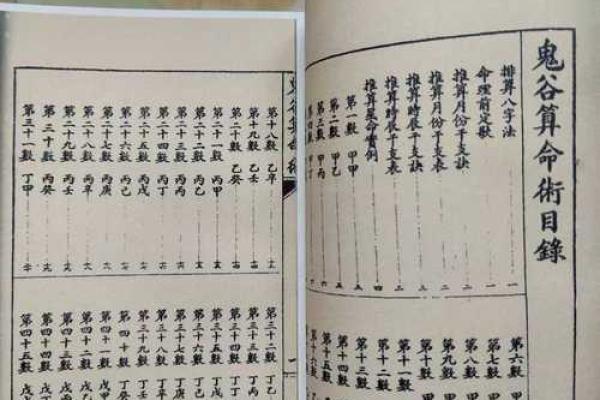 鬼谷算命術目錄
排算八字法 一
命理前定歌 一
推算月份干支訣 二
推算月份干支表 二
推算時辰干支訣
推算時辰干支表
推算星命實例 四
第一數 甲甲
第二數 甲乙
第三數 甲丙
第 數 甲丁
第六數 甲
第七數 甲
第八數 甲
第九數 甲
第十數 甲
第十一數 甲
第十二數
第十三數
第十四數
第十五數
第十六
鬼谷算命術
第十八數 乙辛
第十九數 乙壬
第二十數 乙癸
第二十一數 丙甲
第二十二數 丙乙
第二十三數 丙丙
第二十四數 丙丁
第二十五數 丙戊
第二十六數 丙己
第二十七數 丙庚
第二十八數 丙辛
第二十九數 丙壬
第三十數 丙癸
第三十一數 丁甲
第三十二數 丁乙
第三十三數 丁丙
第三十四數 丁丁
第三十五數 丁
第三十六數 丁
第三十七數 丁
第三十八數 丁
第三十九數 丁
第四十數 丁
第四十一數 戊
第四十二數 戊
第四十三數 戊
第四十四數 戊
第四十五數 戊